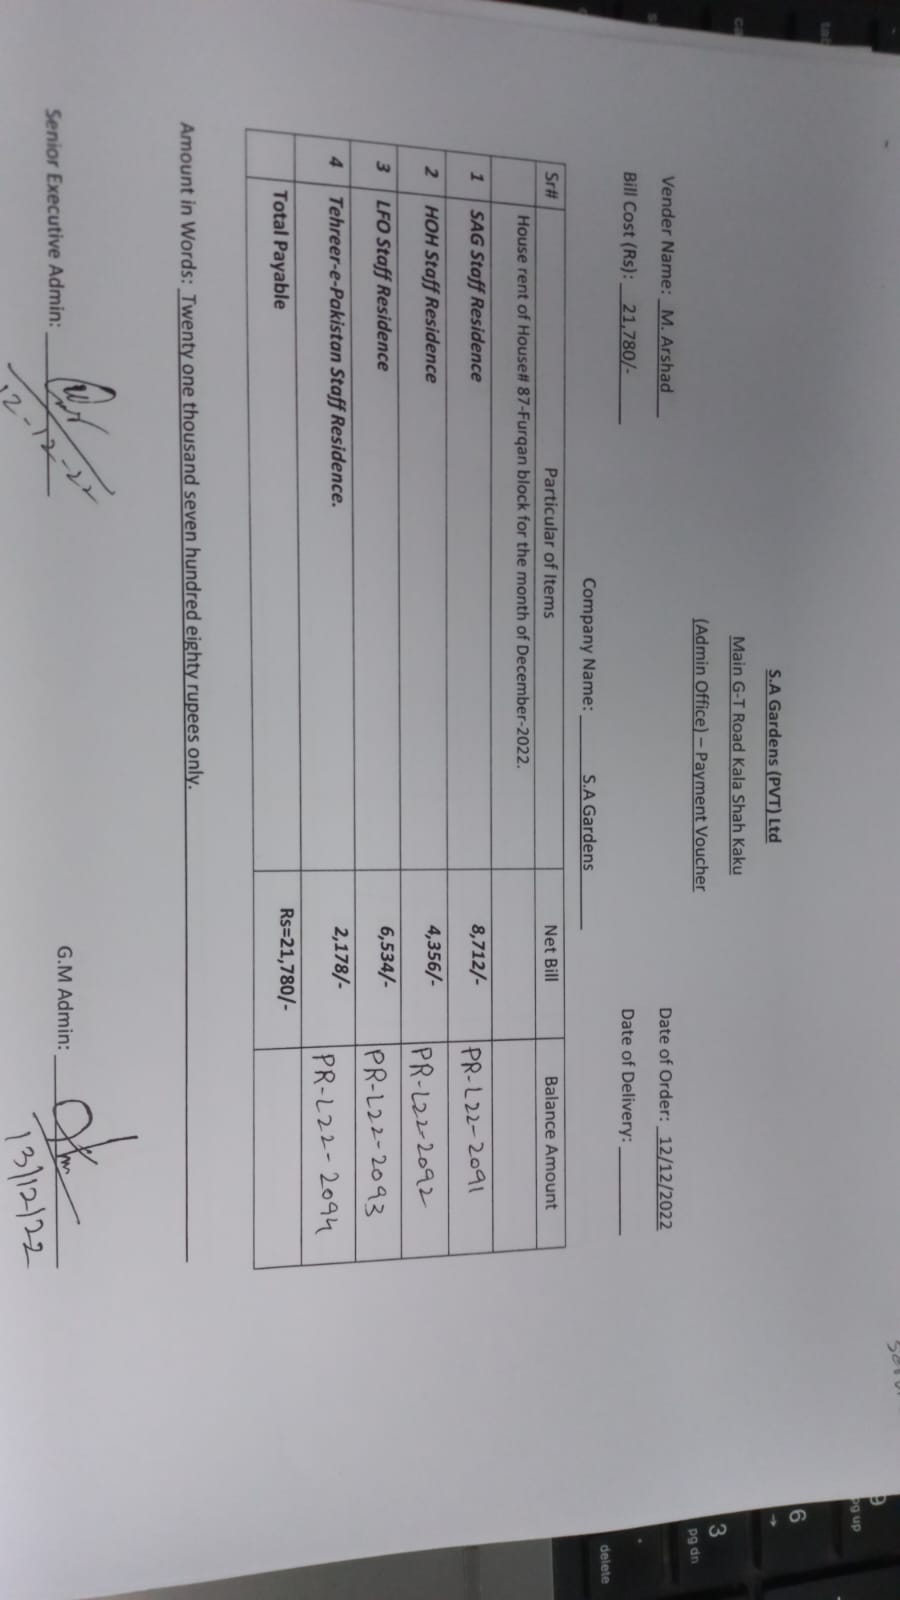 S.A Gardens (PVT) Ltd
Main G-T Road Kala Shah Kaku
(Admin Office) – Payment Voucher
Vender Name: M. Arshad Date of Order: 12/12/2022
Bill Cost (Rs): 21,780/- Date of Delivery:
Company Name: S.A Gardens
Sr# Particular of Items Net Bill Balance Amount
House rent of House# 87-Furqan block for the month of December-2022.
1 SAG Staff Residence 8,712/- PR-L22-2091
2 HOH Staff Residence 4,356/- PR-L22-2092
3 LFO Staff Residence 6,534/- PR-L22-2093
4 Tehreer-e-Pakistan Staff Residence. 2,178/- PR-L22-2094
Total Payable Rs=21,780/-
Amount in Words: Twenty one thousand seven hundred eighty rupees only.
Senior Executive Admin: G.M Admin:
12-12-22 13/12/22
6
3
pg up
pg dn
delete